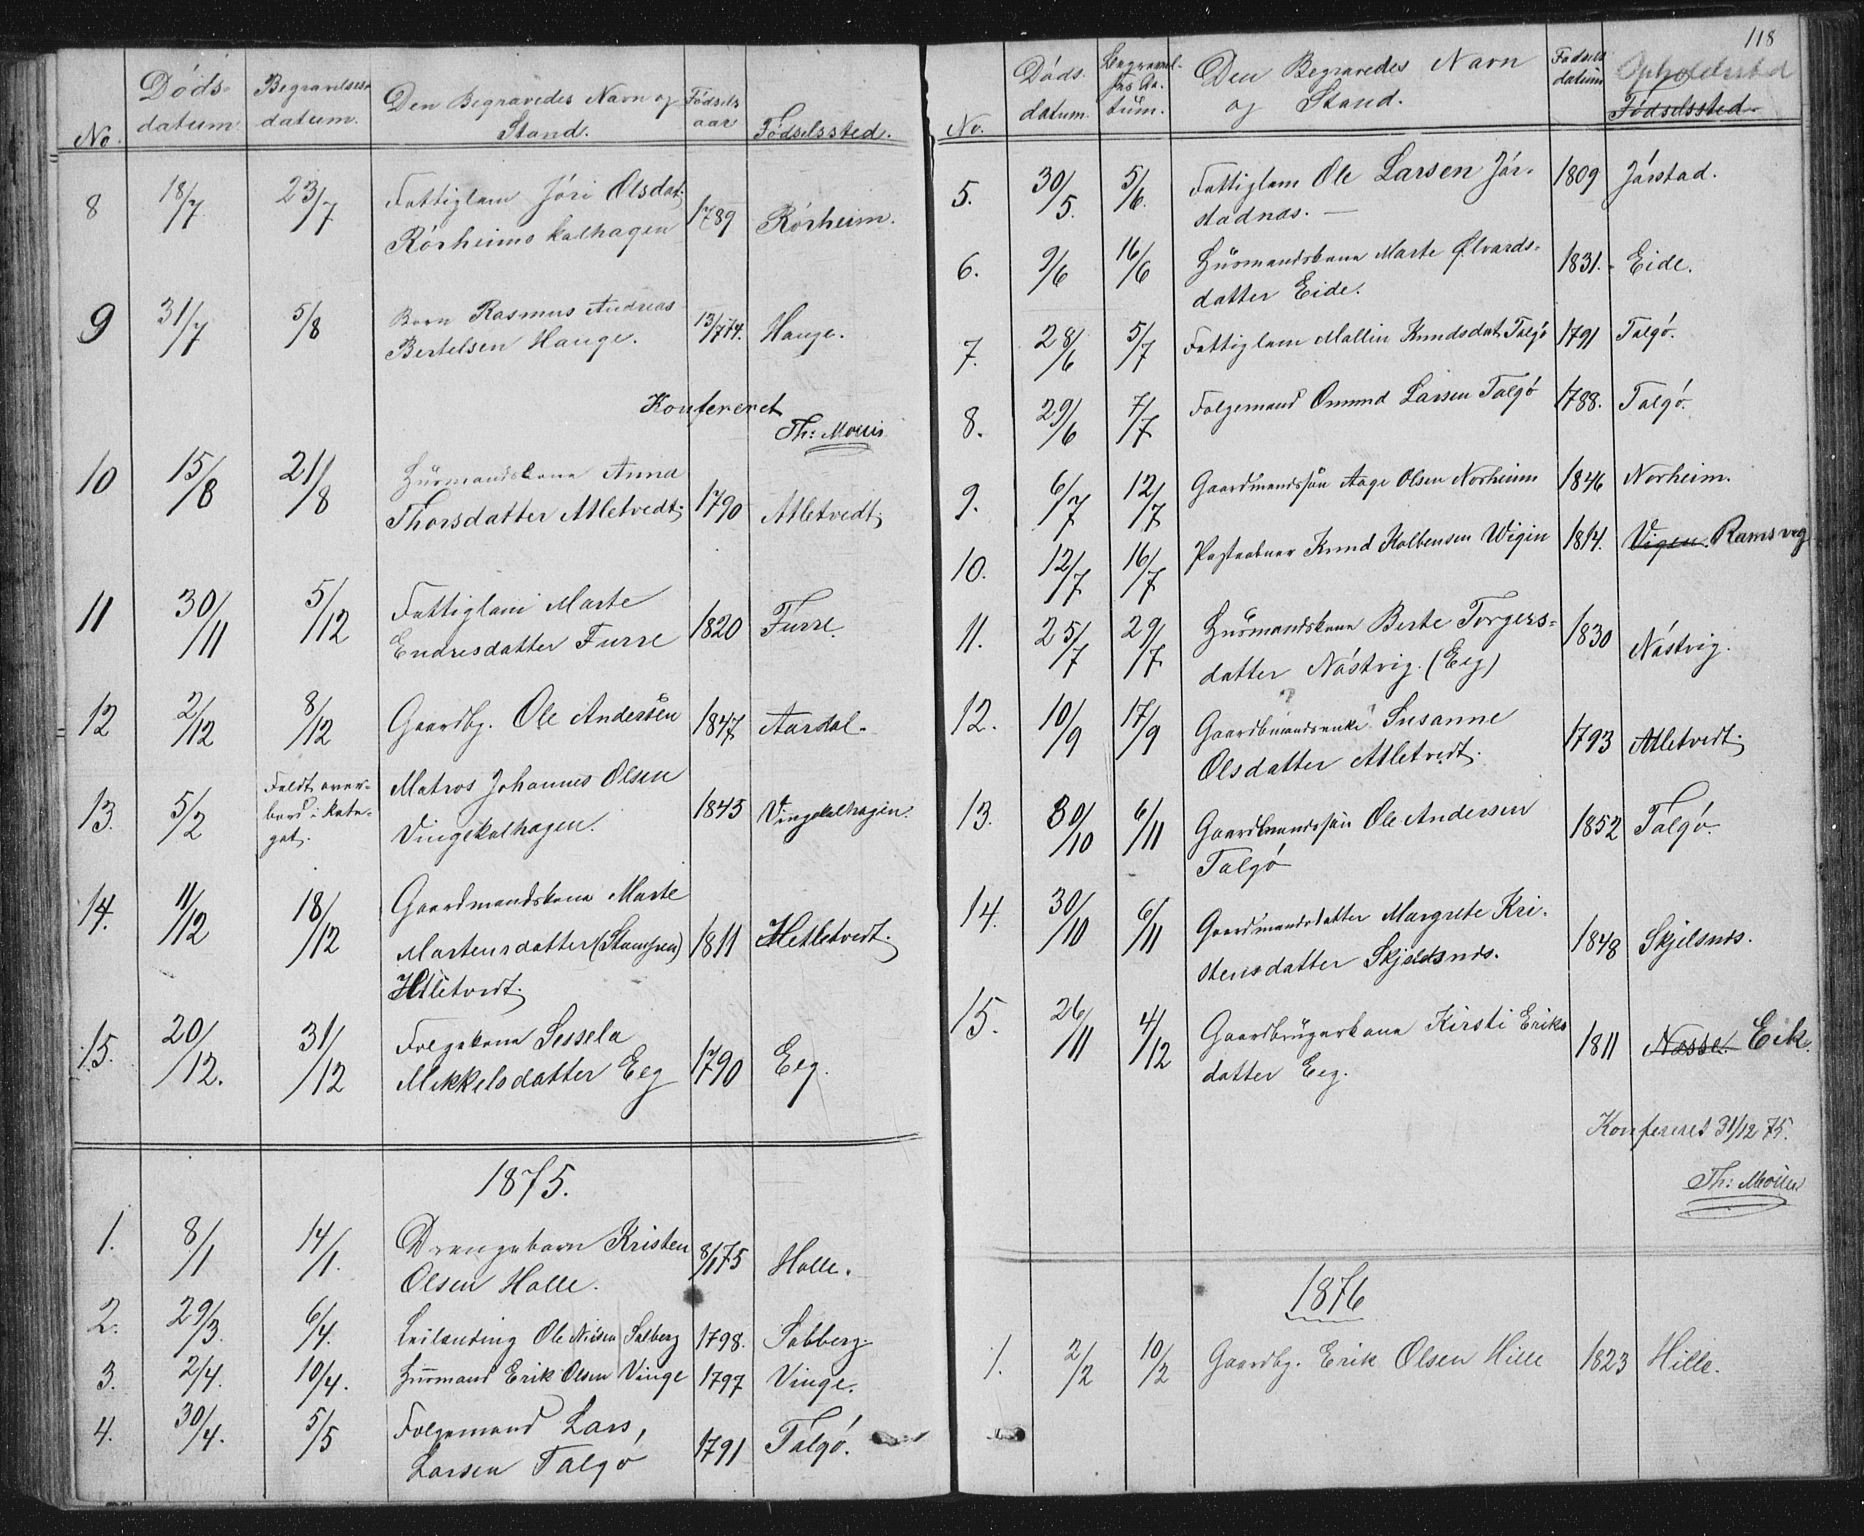 No. Døds- datum. Begravelses- datum. Den Begravedes Navn og Stand. Fødsels aar Fødselssted.
8 18/7 23/7 Fattiglem Jóri Olsdat.
Rórheims kalhagen 1789 Rórheim.
9 31/7 5/8 Barn Rasmus Andreas
Bertelsen Hauge. 13/7 74. Hauge.
Konfereret
Th: Møller
10 15/8 21/8 Húsmandskone Anna
Thorsdatter Atletvedt. 1790 Atletvedt.
11 30/11 5/12 Fattiglem Marte
Endresdatter Furre 1820 Furre.
12 2/12 8/12 Gaardbg. Ole Andersen 1847 Aardal.
13. 5/2 Faldt over- bord i Kate- gat. Matros Johannes Olsen
Vingekalhagen. 1845 Vingekalhagen.
14. 11/12 18/12 Gaardmandskone Marte
Martensdatter 1811 Hetletvedt.
Hetletvedt.
15. 20/12. 31/12 Folgekone Sessela
Mikkelsdatter Eeg 1790 Eeg.
1875.
1. 8/1 14/1. Drengebarn Kristen
Olsen Halle. 8/1 75 Halle.
2. 29/3. 6/4. Leilending Ole Nilsen Salberg 1798. Salberg.
3. 2/4. 10/4. Húsmand Erik Olsen Vinge 1797 Vinge.
4. 30/4. 5/5 Folgemand Lars,
Larsen Talgó 1791 Talgó.
118
No. Døds- datum. Begravel- ses da- tum. Den Begravedes Navn og Stand. Fødsels datum Opholdssted
Fødselssted.
5. 30/5. 5/6. Fattiglem Ole Larsen Jór-
stadnes. — 1809 Jórstad.
6. 9/6 16/6 Húsmandskone Marte Ølvards-
datter Eide. 1831. Eide.
7. 28/6 5/7 Fattiglem Mallin Knudsdat. Talgó 1791 Talgó.
8. 29/6 7/7 Folgemand Omund Larsen Talgó 1788. Talgó.
9. 6/7 12/7 Gaardmandssøn Aage Olsen Norheim 1846 Norheim.
10. 12/7 16/7 Postaabner Knud Kolbensen Wigin 1814. Vigen. Ramsvig
11. 25/7 29/7 Húsmandskone Berte Torgers-
datter Nóstvig. (Eeg) 1830 Nóstvig.
12. 10/9 17/9 Gaardmandsenke? Susanne
Olsdatter Atletvedt. 1793 Atletvedt.
13. 30/10 6/11 Gaardmandssøn Ole Andersen
Talgó 1852 Talgó.
14. 30/10 6/11 Gaardmandsdatter Margrete Kri-
stensdatter Skjeldsnes. 1848 Skjelsnes.
15. 26/11 4/12 Gaardbrúgerkone Kirsti Eriks
datter Eeg. 1811 Nesse. Eik.
Konfereret 31/12 75.
Th: Møller
1876
1. 2/2 10/2 Gaardbg. Erik Olsen Hille 1823 Hille.